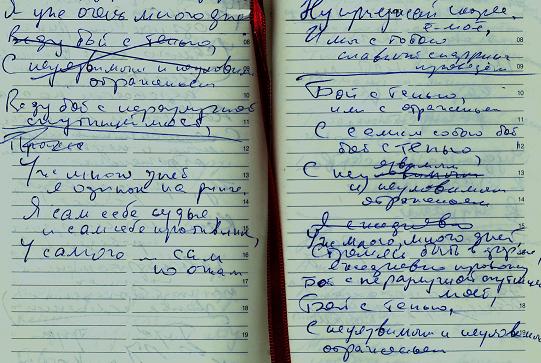 Я уже очень много дней
Веду бой с тенью,
С неуязвимым и неуловимым
отраженьем
Веду бой с неразлучной
спутницей моей,
Уже много дней
я одинок на ринге.
Я сам себе судья
и сам себе противник,
У самого сам
по очкам
Ну приезжай скорее,
ё-моё,
И мы с тобою
славный спарринг
проведём
Бой с тенью,
или с отраженьем
С самим собою бой
бой с тенью
С неуязвимым
и неуловимым
отраженьем
Я ежедневно
Уже много, много дней,
Стремясь быть в
ежедневно провожу
Бой с неразлучной спутницей
моей,
Бой с тенью,
С неуязвимым и неуловимым
отраженьем
08
09
10
11
12
13
14
15
16
17
18
19